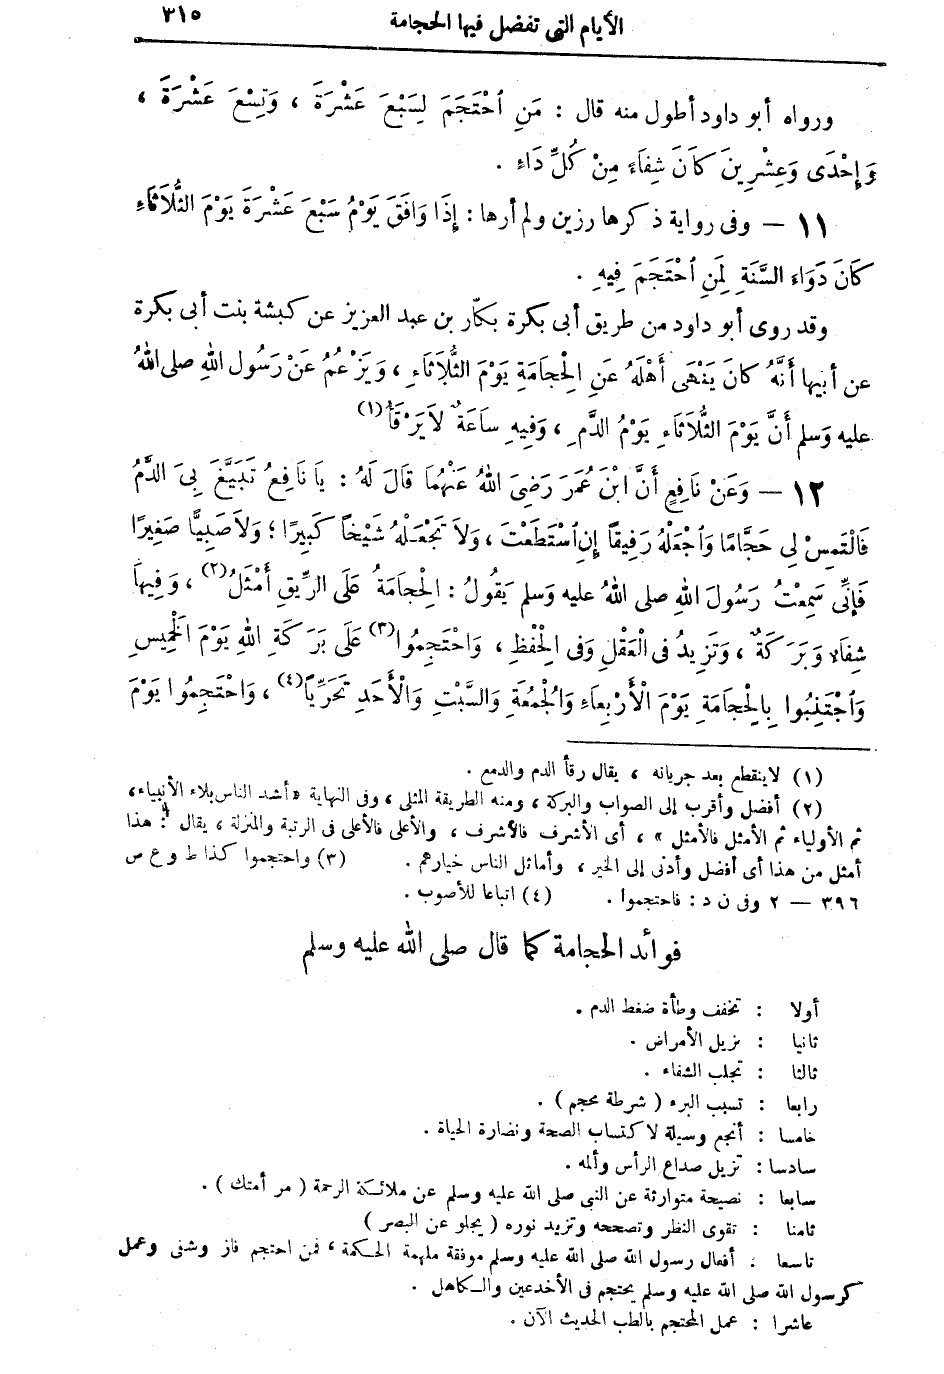 الأيام التى تفضل فيها الحجامة ٣١٥
ورواه أبو داود أطول منه قال : مَنِ ٱحْتَجَمَ لِسَبْعَ عَشْرَةَ ، وَتِسْعَ عَشْرَةَ ،
وَإِحْدَى وَعِشْرِينَ كَانَ شِفَاءً مِنْ كُلِّ دَاءٍ .
١١ — وفى رواية ذكرها رزين ولم أرها : إِذَا وَافَقَ يَوْمُ سَبْعَ عَشْرَةَ يَوْمَ الثُّلَاثَاءِ
كَانَ دَوَاءَ السَّنَةِ لِمَنِ ٱحْتَجَمَ فِيهِ .
وقد روى أبو داود من طريق أبى بكرة بكّار بن عبد العزيز عن كبشة بنت أبى بكرة
عن أبيها أَنَّهُ كَانَ يَنْهَى أَهْلَهُ عَنِ الْحِجَامَةِ يَوْمَ الثُّلَاثَاءِ ، وَيَزْعُمُ عَنْ رَسُولِ اللهِ صلى اللهُ
عليه وَسلم أَنَّ يَوْمَ الثُّلَاثَاءِ يَوْمُ الدَّمِ ، وَفِيهِ سَاعَةٌ لَا يَرْقَأُ (١)
١٢ — وَعَنْ نَافِعٍ أَنَّ ابْنَ عُمَرَ رَضِىَ اللهُ عَنْهُمَا قَالَ لَهُ : يَا نَافِعُ تَبَيَّغَ بِىَ الدَّمُ
فَالْتَمِسْ لِى حَجَّامًا وَٱجْعَلْهُ رَفِيقًا إِنِ ٱسْتَطَعْتَ ، وَلَا تَجْعَلْهُ شَيْخًا كَبِيرًا ؛ وَلَا صَبِيًّا صَغِيرًا
فَإِنِّى سَمِعْتُ رَسُولَ اللهِ صلى اللهُ عليه وسلم يَقُولُ : الْحِجَامَةُ عَلَى الرِّيقِ أَمْثَلُ (٢) ، وَفِيهَا
شِفَاءٌ وَبَرَكَةٌ ، وَتَزِيدُ فى الْعَقْلِ وَفى الْحِفْظِ ، وَاحْتَجِمُوا (٣) عَلَى بَرَكَةِ اللهِ يَوْمَ الْخَمِيسِ
وَٱجْتَنِبُوا بِالْحِجَامَةِ يَوْمَ الْأَرْبِعَاءِ وَالْجُمُعَةِ وَالسَّبْتِ وَالْأَحَدِ تَحَرِّيًا (٤) ، وَاحْتَجِمُوا يَوْمَ
(١) لا ينقطع بعد جريانه ، يقال رقأ الدم والدمع .
(٢) أفضل وأقرب إلى الصواب والبركة ، ومنه الطريقة المثلى ، وفى النهاية « أشد الناس بلاء الأنبياء ،
ثم الأولياء ثم الأمثل فالأمثل » ، أى الأشرف فالأشرف ، والأعلى فالأعلى فى الرتبة والمنزلة ، يقال : هذا
أمثل من هذا أى أفضل وأدنى إلى الخير ، وأماثل الناس خيارهم . (٣) واحتجموا كذا ط وع ص
٣٩٦ — ٢ وفى ن د : فاحتجموا . (٤) اتباعا للأصوب .
فوائد الحجامة كما قال صلى الله عليه وسلم
أولا : تخفف وطأة ضغط الدم .
ثانيا : تزيل الأمراض .
ثالثا : تجلب الشفاء .
رابعا : تسبب البرء ( شرطة محجم ) .
خامسا : أنجع وسيلة لاكتساب الصحة ونضارة الحياة .
سادسا : تزيل صداع الرأس وألمه .
سابعا : نصيحة متوارثة عن النبى صلى الله عليه وسلم عن ملائكة الرحمة ( مر أمتك ) .
ثامنا : تقوى النظر وتصححه وتزيد نوره ( يجلو عن البصر )
تاسعا : أفعال رسول الله صلى الله عليه وسلم موفقة ملهمة الحكمة ، فمن احتجم فاز وشفى وعمل
كرسول الله صلى الله عليه وسلم يحتجم فى الأخدعين والكاهل .
عاشرا : عمل المحتجم بالطب الحديث الآن .